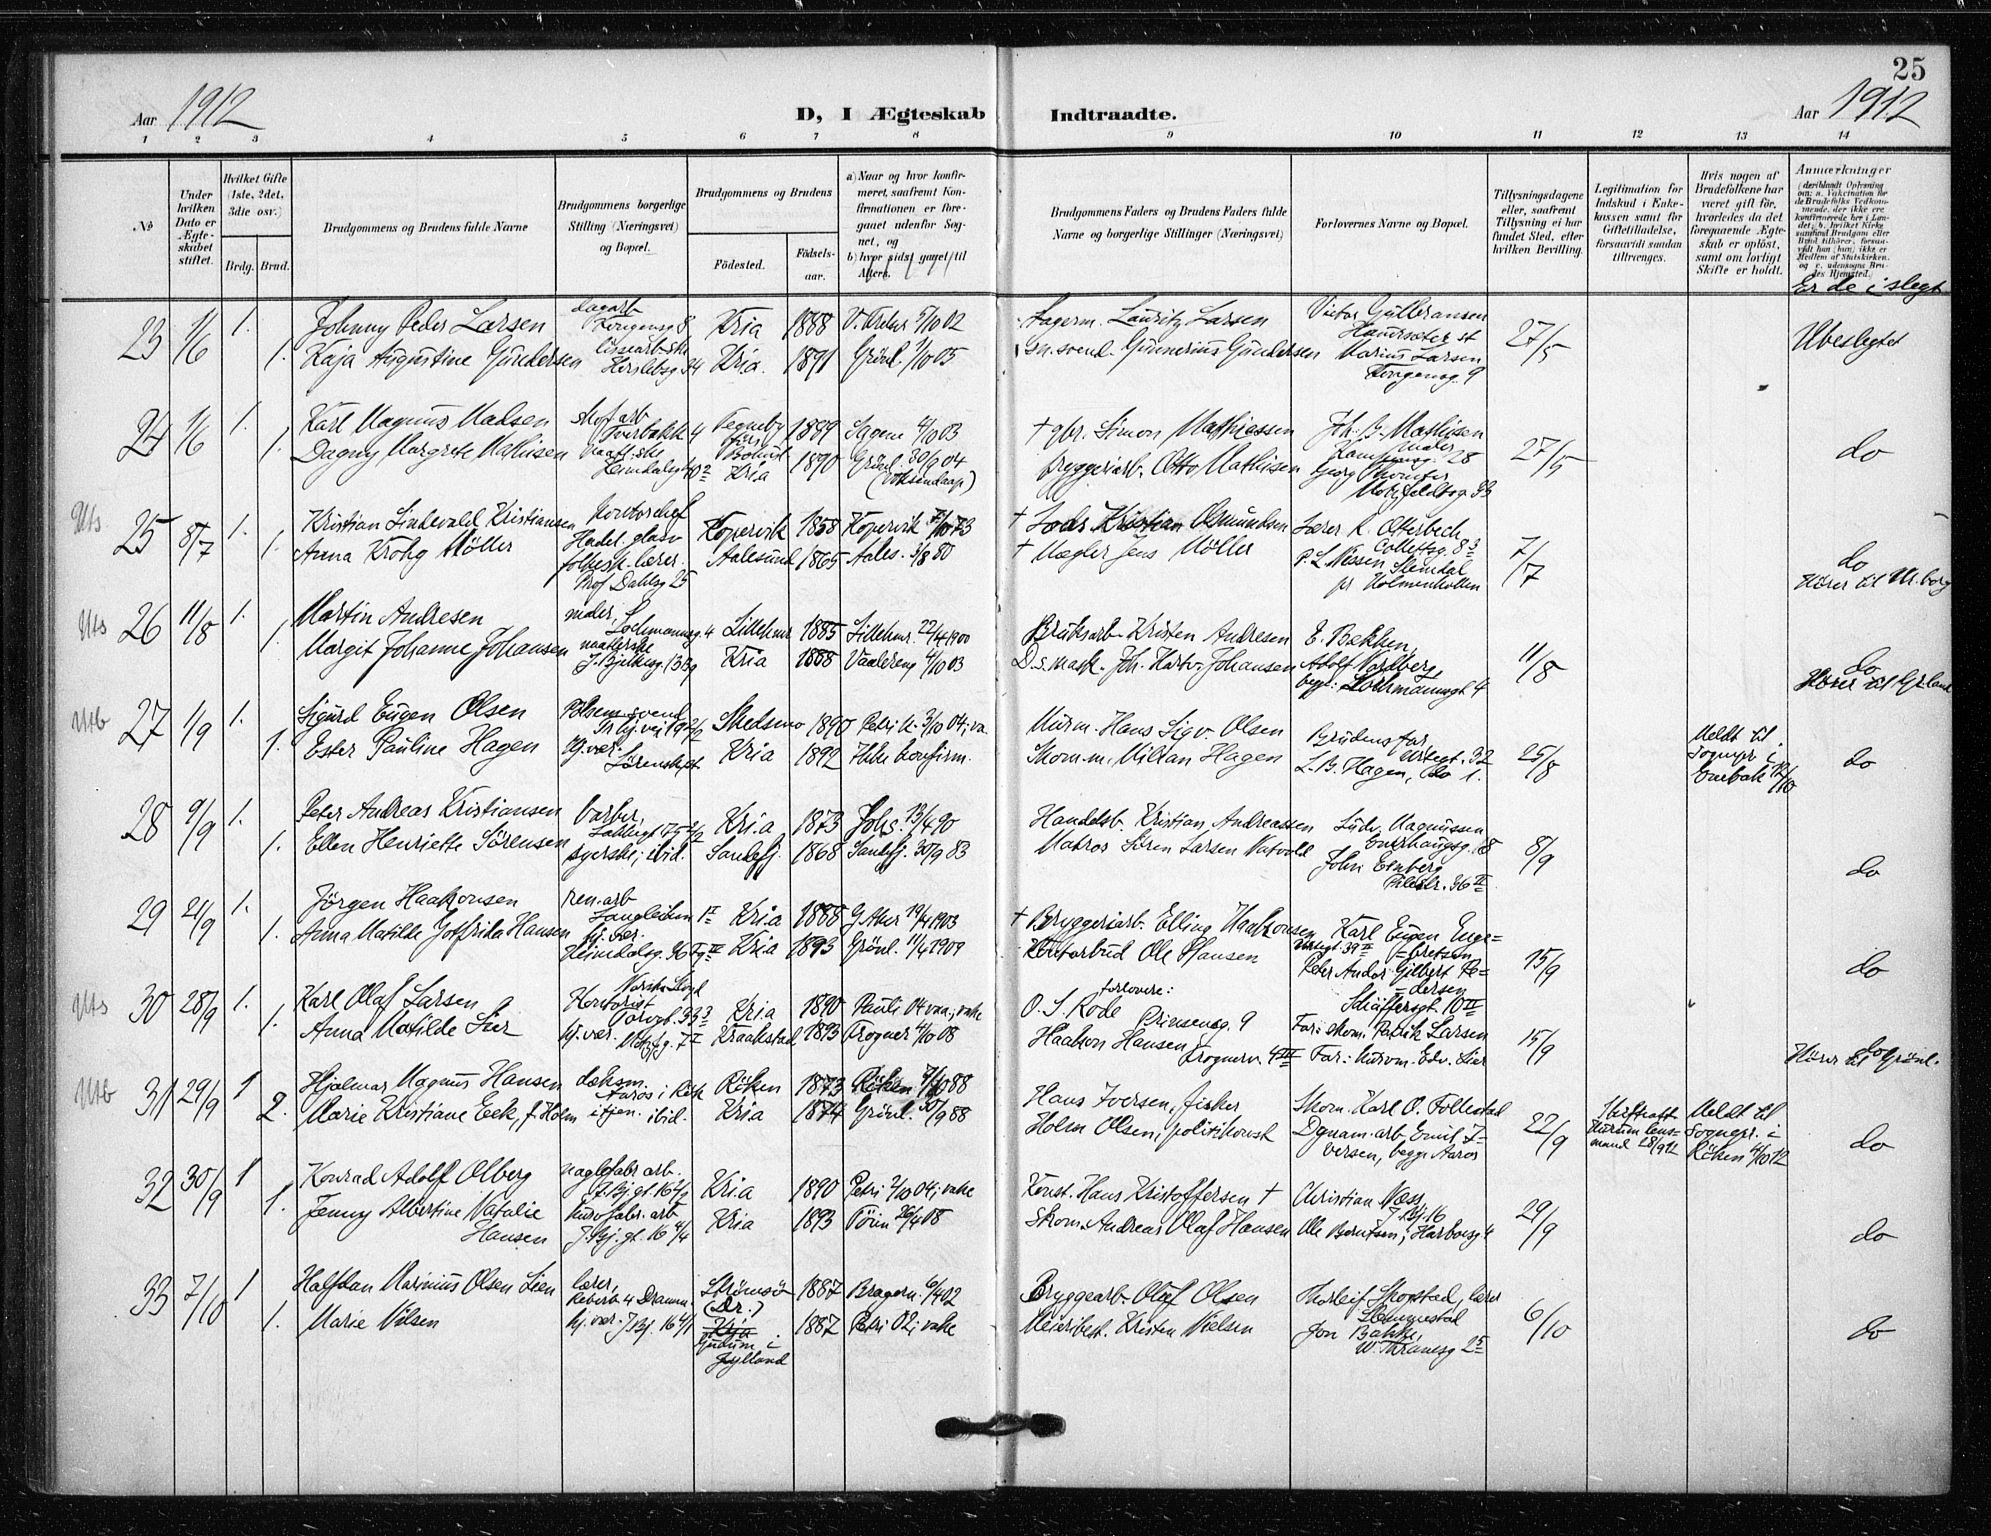 25
Aar 1912
D, I Ægteskab Indtraadte.
Aar 1912
1 2 3 4 5 6 7 8 9 10 11 12 13 14
No
Under hvilken Dato er Ægteskabet stiftet.
Hvilket Gifte (1ste, 2det, 3die osv.)
Brdg. Brud.
Brudgommens og Brudens fulde Navne
Brudgommens borgerlige Stilling (Næringsvei) og Bopæl.
Brudgommens og Brudens
Fødested. Fødselsaar.
a) Naar og hvor konfirmeret, saafremt Konfirmationen er foregaaet udenfor Sognet, og
b) hvor sidst gaaet til Alters.
Brudgommens Faders og Brudens Faders fulde Navne og borgerlige Stillinger (Næringsvei)
Forlovernes Navne og Bopæl.
Tillysningsdagene eller, saafremt Tillysning ei har fundet Sted, efter hvilken Bevilling.
Legitimation for Indskud i Enkekassen samt for Giftetilladelse, forsaavidt saadan tiltrænges.
Hvis nogen af Brudefolkene har været gift før, hvorledes da det foregaaende Ægteskab er opløst, samt om lovligt Skifte er holdt.
Anmærkninger
(deriblandt Oplysning om: a. Vakcination for de Brudefolks Vedkommende, der ikke ere konfirmerede her i Landet; b. hvilket Kirkesamfund Brudgom eller Brud tilhører, forsaavidt han (hun) ikke er Medlem af Statskirken, og c. udensogns Brudes Hjemsted.)
Er de i slegt
23 1/6 1. Johnny Peder Larsen dagarb Tengensg 8 Kria 1888 5/10 02 Lagerm. Lauritz Larsen Victor Gulbransen 27/5 Ubeslegtet
1. Kaja Augustine Gundersen Herslebsg 34 Kria. 1891 Grönl. 1/10 05 sn.svend. Gunnerius Gundersen Marius Larsen Tengensg. 9
24 1/6 1. Karl Magnus Madsen 4 Tegneby 1889 Sagene 4/10 03 † gbr. Simon Mathiessen Joh. G. Mathisen 27/5 do
1. Dagny Margrete Mathisen Heimdalsgt 10 Kria 1890 Grönl. 30/9 04 bryggeriarb. Otto Mathisen Georg Motzfeldtsg. 33
Uts
25 8/7 1. Kristian Lindevald Kristiansen Kontorchef Kopervik 1858 Kopervik 5/10 73 † Lods Kristian Osmundsen Lærer K. Otterbech Collettsg. 83 7/7 do
1. Anna Krohg Möller folkesk. lærer. Prof Dahlsg 25 Aalesund 1865 Aales. 3/8 80 † Mægler Jens Möller P. L. Nissen Slemdal pr Holmenkollen
Hörer til Ur.borg
Uts
26 11/8 1. Martin Andresen maler, Lochmannsg. 4 Lillehmr 1885 Lillehmr. 22/4 1900 Bruksarb. Kristen Andresen E. Bakken, 11/8 do
1. Margit Johanne Johansen J. Bjelkesg. 13 Kria 1888 Vaalereng 4/10 03 D.s.mask. Joh. Hartv. Johansen Adolf Nordberg, begge: Lochmannsgt 4
Hörer til Grland
Utb
27 1/9 1. Sigurd Eugen Olsen Pölsem.svend Skedsmo 1890 Petri k. 3/10 04; va. Murm. Hans Sigv. Olsen Brudens far, Urtegt. 32 25/8 do
1. Ester Pauline Hagen hj.vær. Kria 1892 Ikke konfirm. Skom.m. Milian Hagen L. B. Hagen, do 1.
Meldt til Sognepr i Enebak 12/10
28 9/9 1. Peter Andreas Kristiansen Barber, Kria 1873 Johs. 13/4 90 Handelsb. Kristian Andreassen Ludv. Magnussen Enerhaugsg. 8/9 do
1. Ellen Henriette Sörensen syerske; ibid. Sandefj. 1868 Sandefj. 30/9 83 Matros Sören Larsen John Enberg Pilestr. 36 II
29 21/9 1. Jörgen Haakonsen ren.arb Langleiken 1 Kria 1888 19/4 1903 † Bryggeriarb. Elling Haakonsen Karl Eugen Engebretsen 15/9 do
1. Anna Matilde Gotfrida Hansen hj. vær. Heimdalsg. 36 Kria 1893 Grönl. 11/4 1909 Kontorbud Ole Hansen Peter Andor Gilbert Pedersen Schäffersgt. 10 II
Uts
30 28/9 1. Karl Olaf Larsen Kontorist Kria 1890 Pauli 04 vaa.; vake forlovere: O. S. Rode Prinsensg. 9 Far: skom. Patrik Larsen 15/9 do
1. Anna Matilde Lier hj. vær. Kraakstad 1893 Frogner 4/10 08 Haakon Hansen Frognerv. 4 III Far: Murm. Edv. Lier
Hörer til Grönl.
Utb
31 29/9 1 Hjalmar Magnus Hansen dæksm. Aaros i Rök. Röken 1873 Röken 7/10 88 Hans Iversen, fisker Skom. Karl O. Follestad 22/9 do
2. Marie Kristiane Eek, f. Holm tjen. ibid. Kria 1874 Grönl. 30/9 88 Holm Olsen, politikonst Dynam.arb. Emil Iversen, begge Aaros
Skifteatt Hurum lensmand 28/9 12 Meldt til Sognepr. i Röken 4/10 12
32 30/9 1 Konrad Adolf Olberg naglefabr arb. J. Bj. gt. 16 Kria 1890 Petri 2/10 04; vake Konst. Hans Kristoffersen † Christian Næss, J. Bj. 16 29/9 do
1. Jenny Albertine Natalie Hansen J. Bj. gt. 16 4/4 Kria 1893 26/4 08 Skom. Andreas Olaf Hansen Ole Berntsen, Harboesg 4
33 7/10 1 Halfdan Marinius Olsen Lien lærer, Reberb. 4 Dramm. Strömsö (Dr.) 1887 Bragern. 6/4 02 Bryggearb. Olaf Olsen Thorleif Skogstad, lærer Slemmestad 6/10 do
1. Marie Nilsen hj. vær. J. Bj. 16 Kria Hjudum i Jylland 1887 Petri 02; vake Meieribest. Kristen Nielsen Jon Bakke, W. Thranesg 25